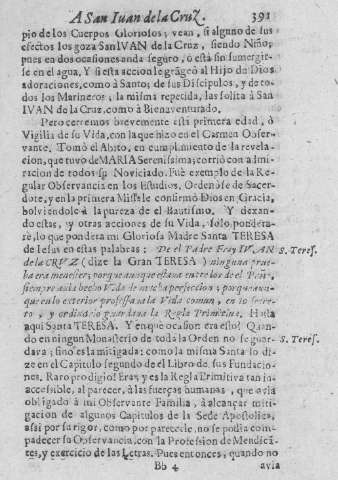 A San Iuan de la Cruz. 391
pio de los Cuerpos Gloriosos; vean, si alguno de sus
efectos los goza San IVAN de la Cruz, siendo Niño;
pues en dos ocasiones anda seguro, o està sin sumergir-
se en el agua. Y si esta accion le grãgeò al Hijo de Dios
adoraciones, como à Santo; de sus Discipulos, y de to-
dos los Marineros; la misma repetida, las solita à San
IVAN de la Cruz, como à Bienaventurado.
Pero cerremos brevemente esta primera edad, ò
Vigilia de su Vida, con la que hizo en el Carmen Obser-
vante. Tomò el Abito, en cumplimiento de la revela-
cion, que tuvo de MARIA Serenissima; corriò con a Imi-
racion de todos su Noviciado. Fuè exemplo de la Re-
gular Observancia en los Estudios. Ordenòse de Sacer-
dote, y en la primera Missa le confirmò Dios en Gracia,
bolviendole à la pureza de el Bautismo. Y dexando
estas, y otras acciones de su Vida, solo pondera-
rè, lo que pondera mi Gloriosa Madre Santa TERESA
de Iesus en estas palabras: De el Padre Fray IVAN
S. Teres.
de la CRVZ (dize la Gran TERESA) ninguna prue-
ba era menester; porque aunque estava entre los de el Paño,
siempre avia hecho Vida de mucha perfeccion; porque aun-
que en lo exterior professava la Vida comun, en lo secre-
to, y ordinario guardava la Regla Primitiva. Hasta
aqui Santa TERESA. Y en que ocasion era esto? Quan-
do en ningun Monasterio de toda la Orden no se guar-
S. Teres.
dara; sino es la mitigada: como la misma Santa lo di-
ze en el Capitulo segundo de el Libro de sus Fundacio-
nes. Raro prodigio! Era, y es la Regla Primitiva tan in-
accessible, al parecer, à las fuerças humanas, que avia
obligado à mi Observante Familia, à alcançar miti-
gacion de algunos Capitulos de la Sede Apostolica,
assi por su rigor, como por parecerle, no se podia com-
padecer su Observancia, con la Profession de Mendicã-
tes, y exercicio de las Letras. Pues entonces, quando no
Bb 4 avia